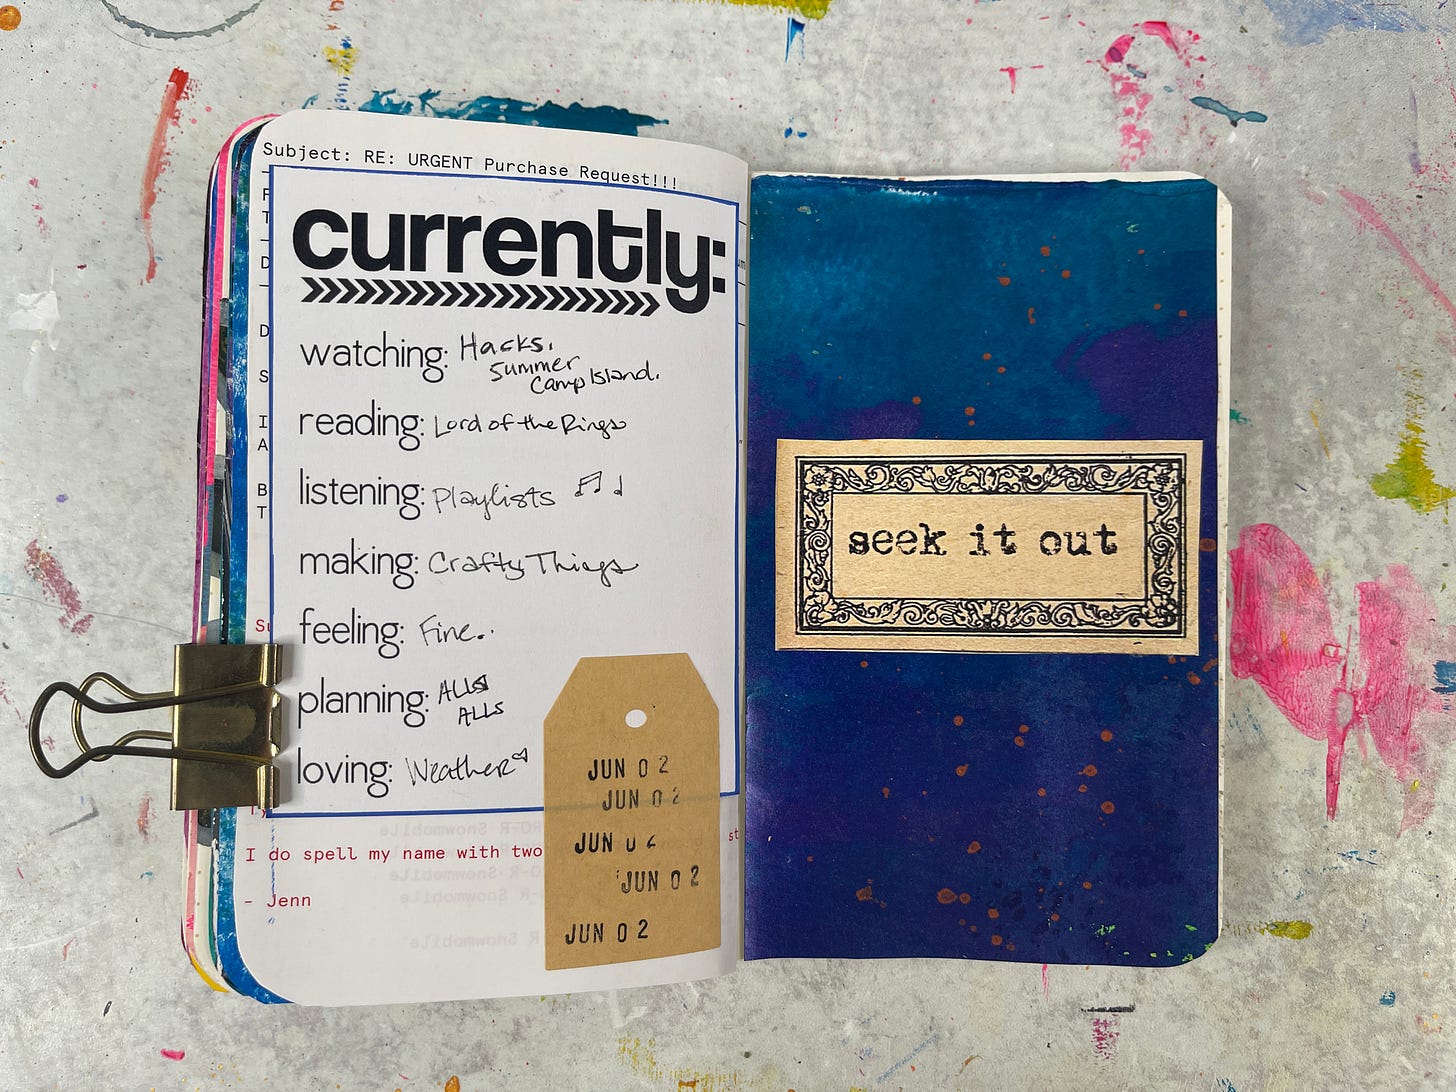 Subject: RE: URGENT Purchase Request!!!
F
T
D
D
S
I
A
B
T
currently:
watching: Hacks.
Summer
Camp Island.
reading: Lord of the Rings
listening: Playlists
making: Crafty Things
feeling: Fine..
planning: ALLS
ALLS
loving: Weather
I do spell my name with two
st
- Jenn
JUN 02
JUN 02
JUN 02
JUN 02
JUN 02
seek it out